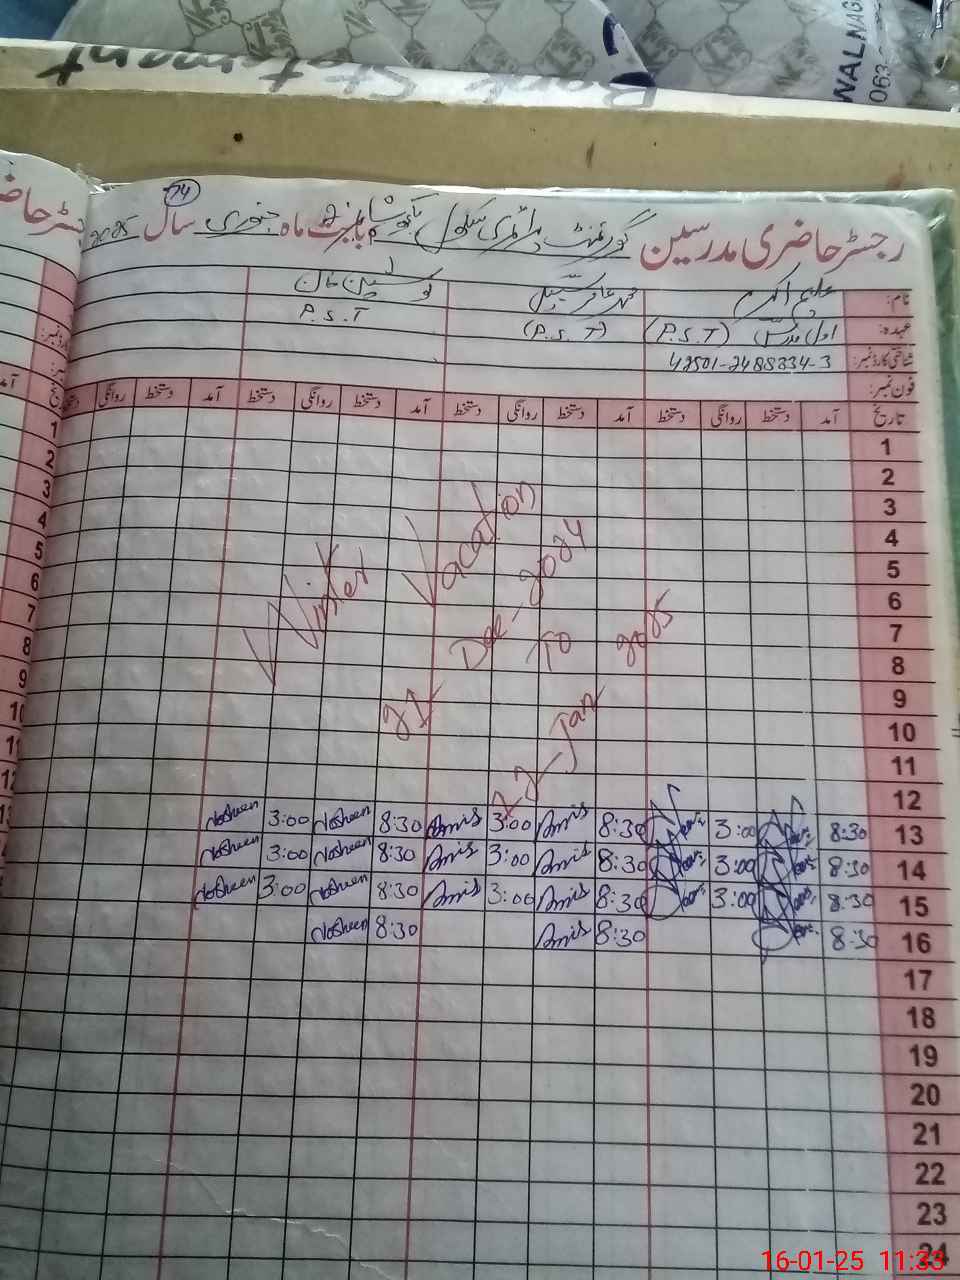 Bank Statment
WALNAG
063
74
رجسٹر حاضری مدرسین گورنمنٹ پرائمری سکول بابت ماہ جنوری سال 2025
نام:
عہدہ: اول مدرس (P.S.T) (P.S.T) P.S.T
شناختی کارڈ نمبر: 42501-2488334-3
فون نمبر:
تاریخ آمد دستخط روانگی دستخط آمد دستخط روانگی دستخط آمد دستخط روانگی دستخط آمد دستخط روانگی
1
2
3
4
5
6
7
8
9
10
11
12
Winter Vacation
21 Dec-2024
To
12-Jan 2025
13 8:30 3:00 8:30 Amis 3:00 Amis 8:30 Nosheen 3:00 Nosheen
14 8:30 3:00 8:30 Amis 3:00 Amis 8:30 Nosheen 3:00 Nosheen
15 8:30 3:00 8:30 Amis 3:00 Amis 8:30 Nosheen 3:00 Nosheen
16 8:30 8:30 Amis 8:30 Nosheen
17
18
19
20
21
22
23
24
16-01-25 11:33